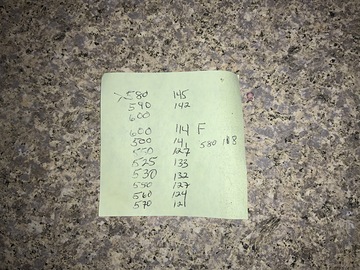 580 145
540 142
600
600 114 F
500 141
550 127 580 118
525 133
530 132
550 127
560 124
570 121